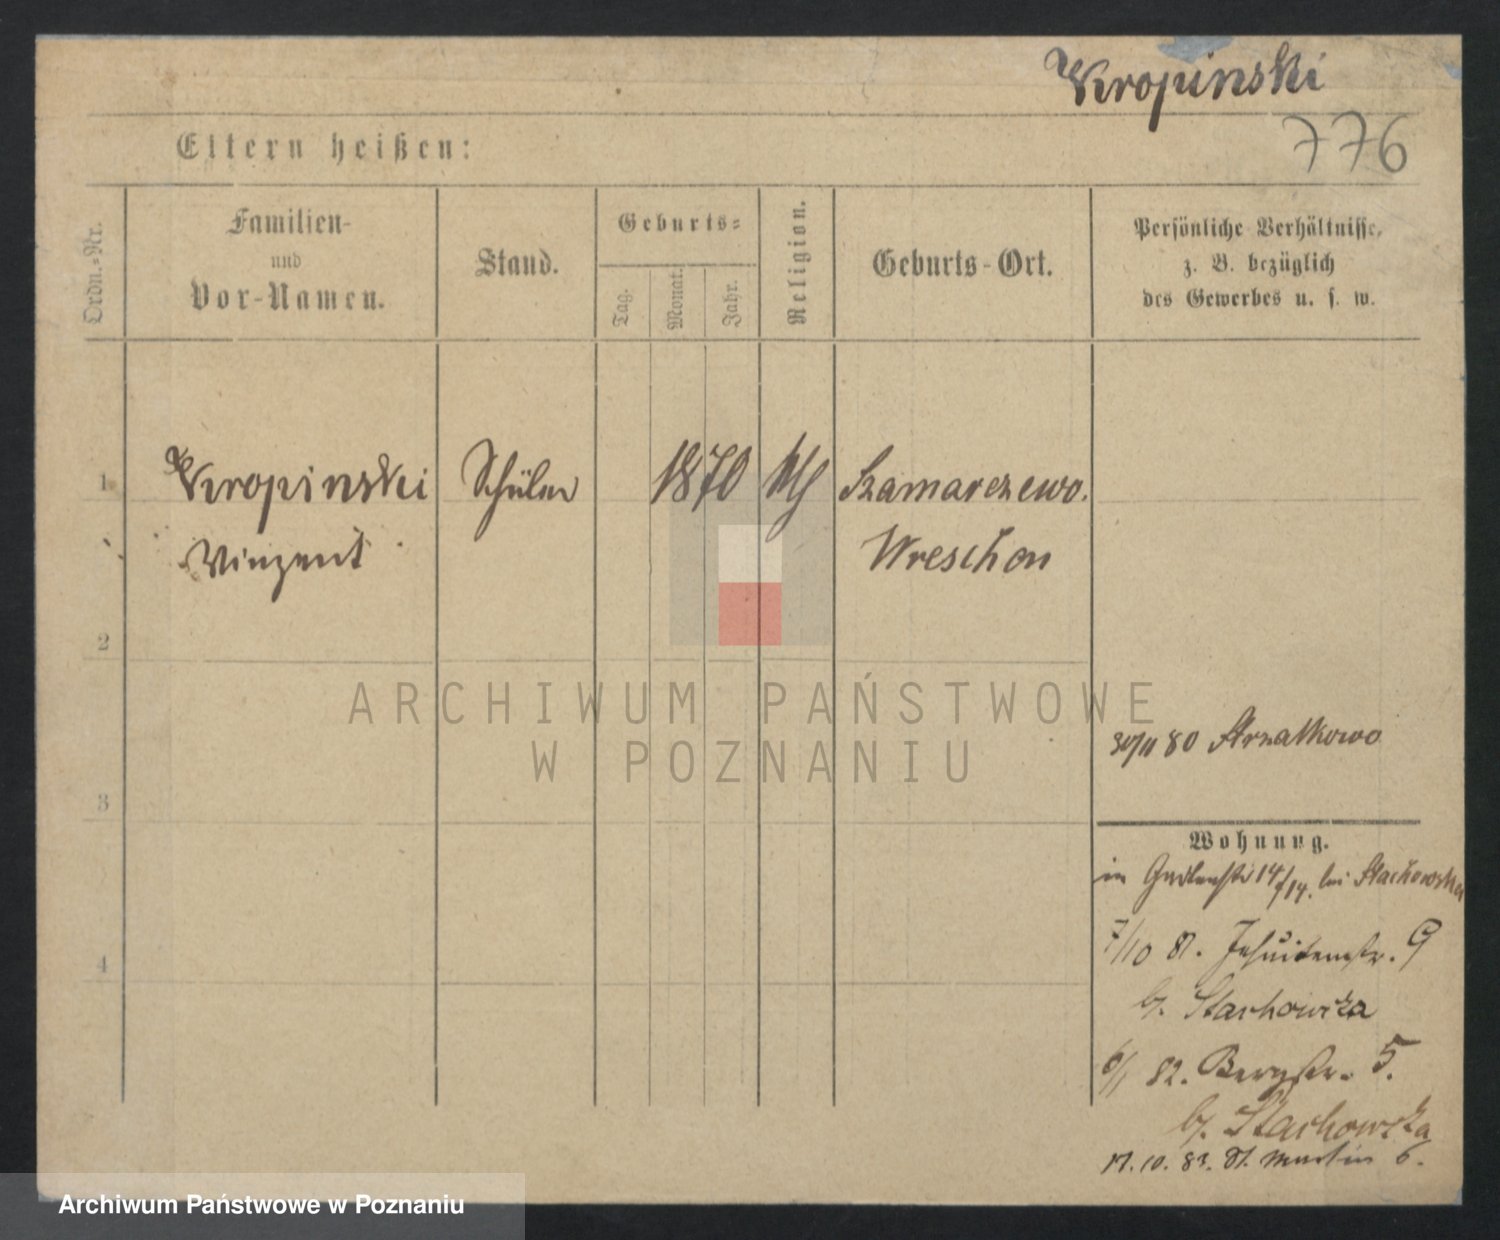 Kropinski
776
Eltern heißen:
Ordn.-Nr.
Familien-
und
Vor-Namen.
Stand.
Geburts-
Tag.
Monat.
Jahr.
Religion.
Geburts-Ort.
Persönliche Verhältnisse,
z. B. bezüglich
des Gewerbes u. s. w.
1
Kropinski
Schüler
1870
Szamarzewo.
Vinzent
Wreschen
2
ARCHIWUM PAŃSTWOWE
W POZNANIU
80 Strzalkowo
3
Wohnung.
in 14/14. bei Stachowska
7/10 81. Jesuitenstr. 9
4
b. Stachowska
6/1 82. Bergstr. 5.
b. Stachowska
17.10.83. St. Martin 6.
Archiwum Państwowe w Poznaniu